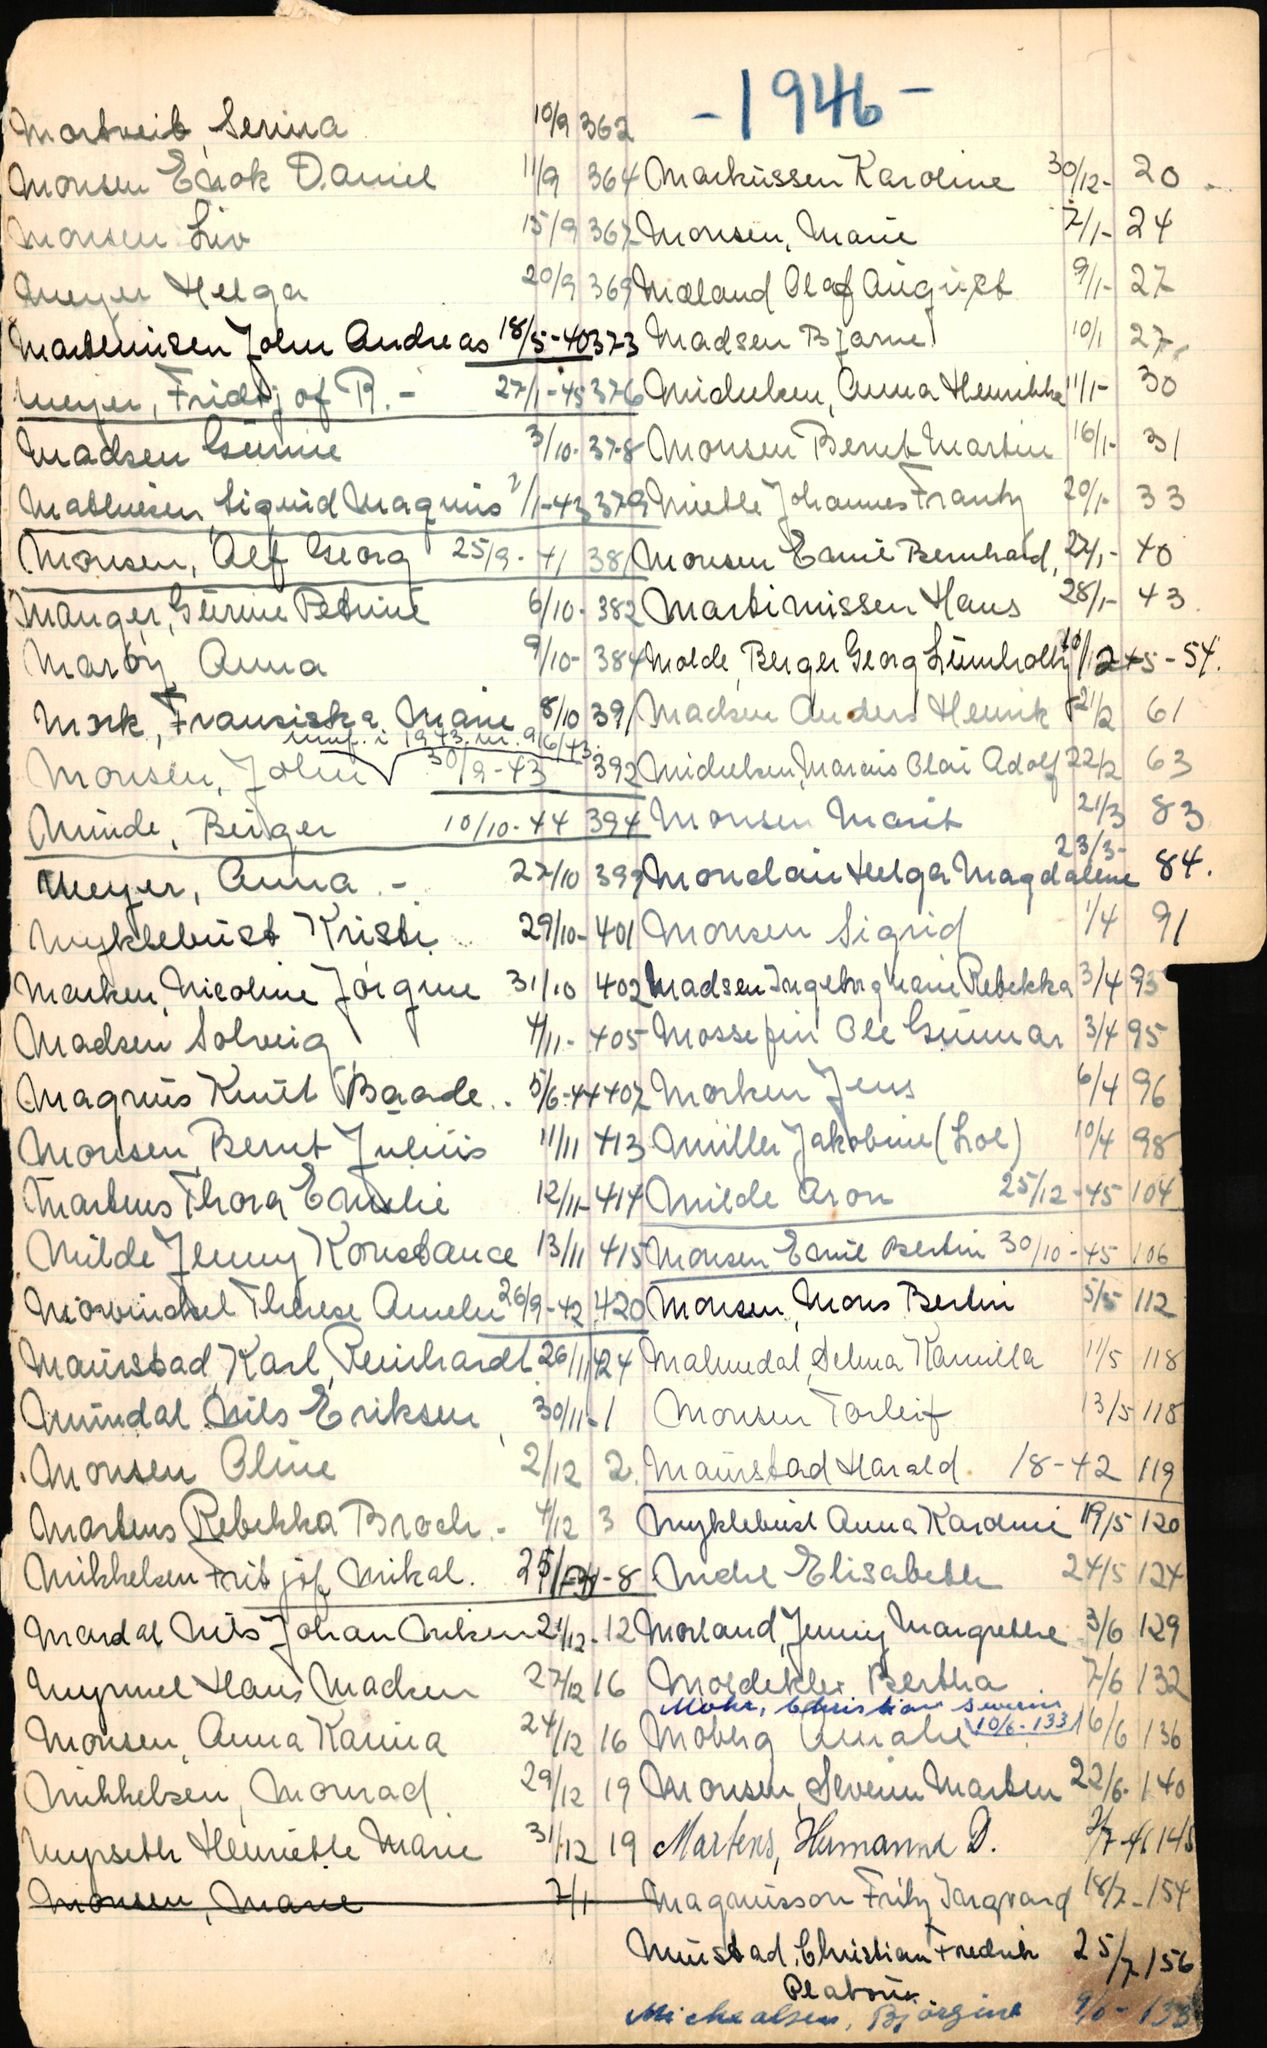 -1946-
Mortveit, Serina 10/9 362
Monsen Enok Daniel 11/9 364
Monsen Liv 15/9 367
Meyer Helga 20/9 369
Martinisen John Andreas 18/5-40 373
Meyer, Fridtjof R.- 27/1-45 376
Madsen Gunne 3/10- 378
Mathiesen, Sigurd Magnus 2/1-43 379
Monsen, Alf Georg 25/9-41 381
Manger, Gurine Petrine 6/10- 382
Marøy Anna 9/10- 384
Mørk, Fransiska Marie 8/10 391
i 1943 nr. 96/43
Monsen, John 30/9-43 392
Minde, Birger 10/10-44 394
Meyer, Anna.- 27/10 399
Myklebust Kristi 29/10- 401
Marken, Nicoline Jørgine 31/10 402
Madsen Solveig 4/11- 405
Magnus Knut Baade. 5/6-44 407
Monsen, Bernt Julius 11/11 413
Martens Thora Emelie 12/11- 414
Milde Jenny Konstance 13/11 415
Mowinckel Therese Amelie 26/9-42 420
Maurstad, Karl Reinhardt 26/11 424
Mundal Nils Eriksen 30/11- 1
Monsen Oline 2/12 2.
Martens Rebekka Broch.- 4/12 3
Mikkelsen Fritjof Mikal. 8
Mardal Nils Johan 21/12- 12
Myrmel Hans Madsen 27/12 16
Monsen, Anna Karina 24/12 16
Mikkelsen, Monrad 29/12 19
Myrseth Henriette Marie 31/12 19
Monsen, Marie 7/1
Markussen Karoline 30/12- 20
Monsen, Marie 7/1- 24
Mæland Olaf August 9/1- 27
Madsen Bjarne 10/1 27
Midelsen, Anna Henrikke 11/1- 30
Monsen Bernt Martin 16/1- 31
Miethe Johannes Frantz 20/1- 33
Monsen Emil Bernhard, 27/1- 40
Martinissen Hans 28/1- 43
Molde, Berger Georg 45-54.
Madsen Anders Henrik 21/2 61
Midelsen, Marius Olai Adolf 22/2 63
Monsen Marit 21/3 83
Monclair Helga Magdalene 23/3- 84.
Monsen Sigrid 1/4 91
Madsen Ingeborg Marie Rebekka 3/4 93
Mossefin Ole Gunnar 3/4 95
Morken Jens 6/4 96
Müller Jakobine (Lol) 10/4 98
Milde Aron 25/12-45 104
Monsen Emil Bertin 30/10-45 106
Monsen, Mons Bertin 5/5 112
Malmdal, Selma Kamilla 11/5 118
Monsen Torleif 13/5 118
Maurstad Harald 18-42 119
Myklebust Anna Karoline 19/5 120
Elisabeth 24/5 124
Morland, Jenny Margrethe 3/6 129
Bertha 7/6 132
Mohr, Christian Severin 10/6-133
Moberg Amalie 16/6 136
Monsen, Severin Marten 22/6- 140
Martens, Hermann D. 2/7-46 145
Magnusson Fritz Ingvard 18/7- 154
Mustad, Christian Fredrik 25/7 156
Platou.
Michealsen, Bjørgine